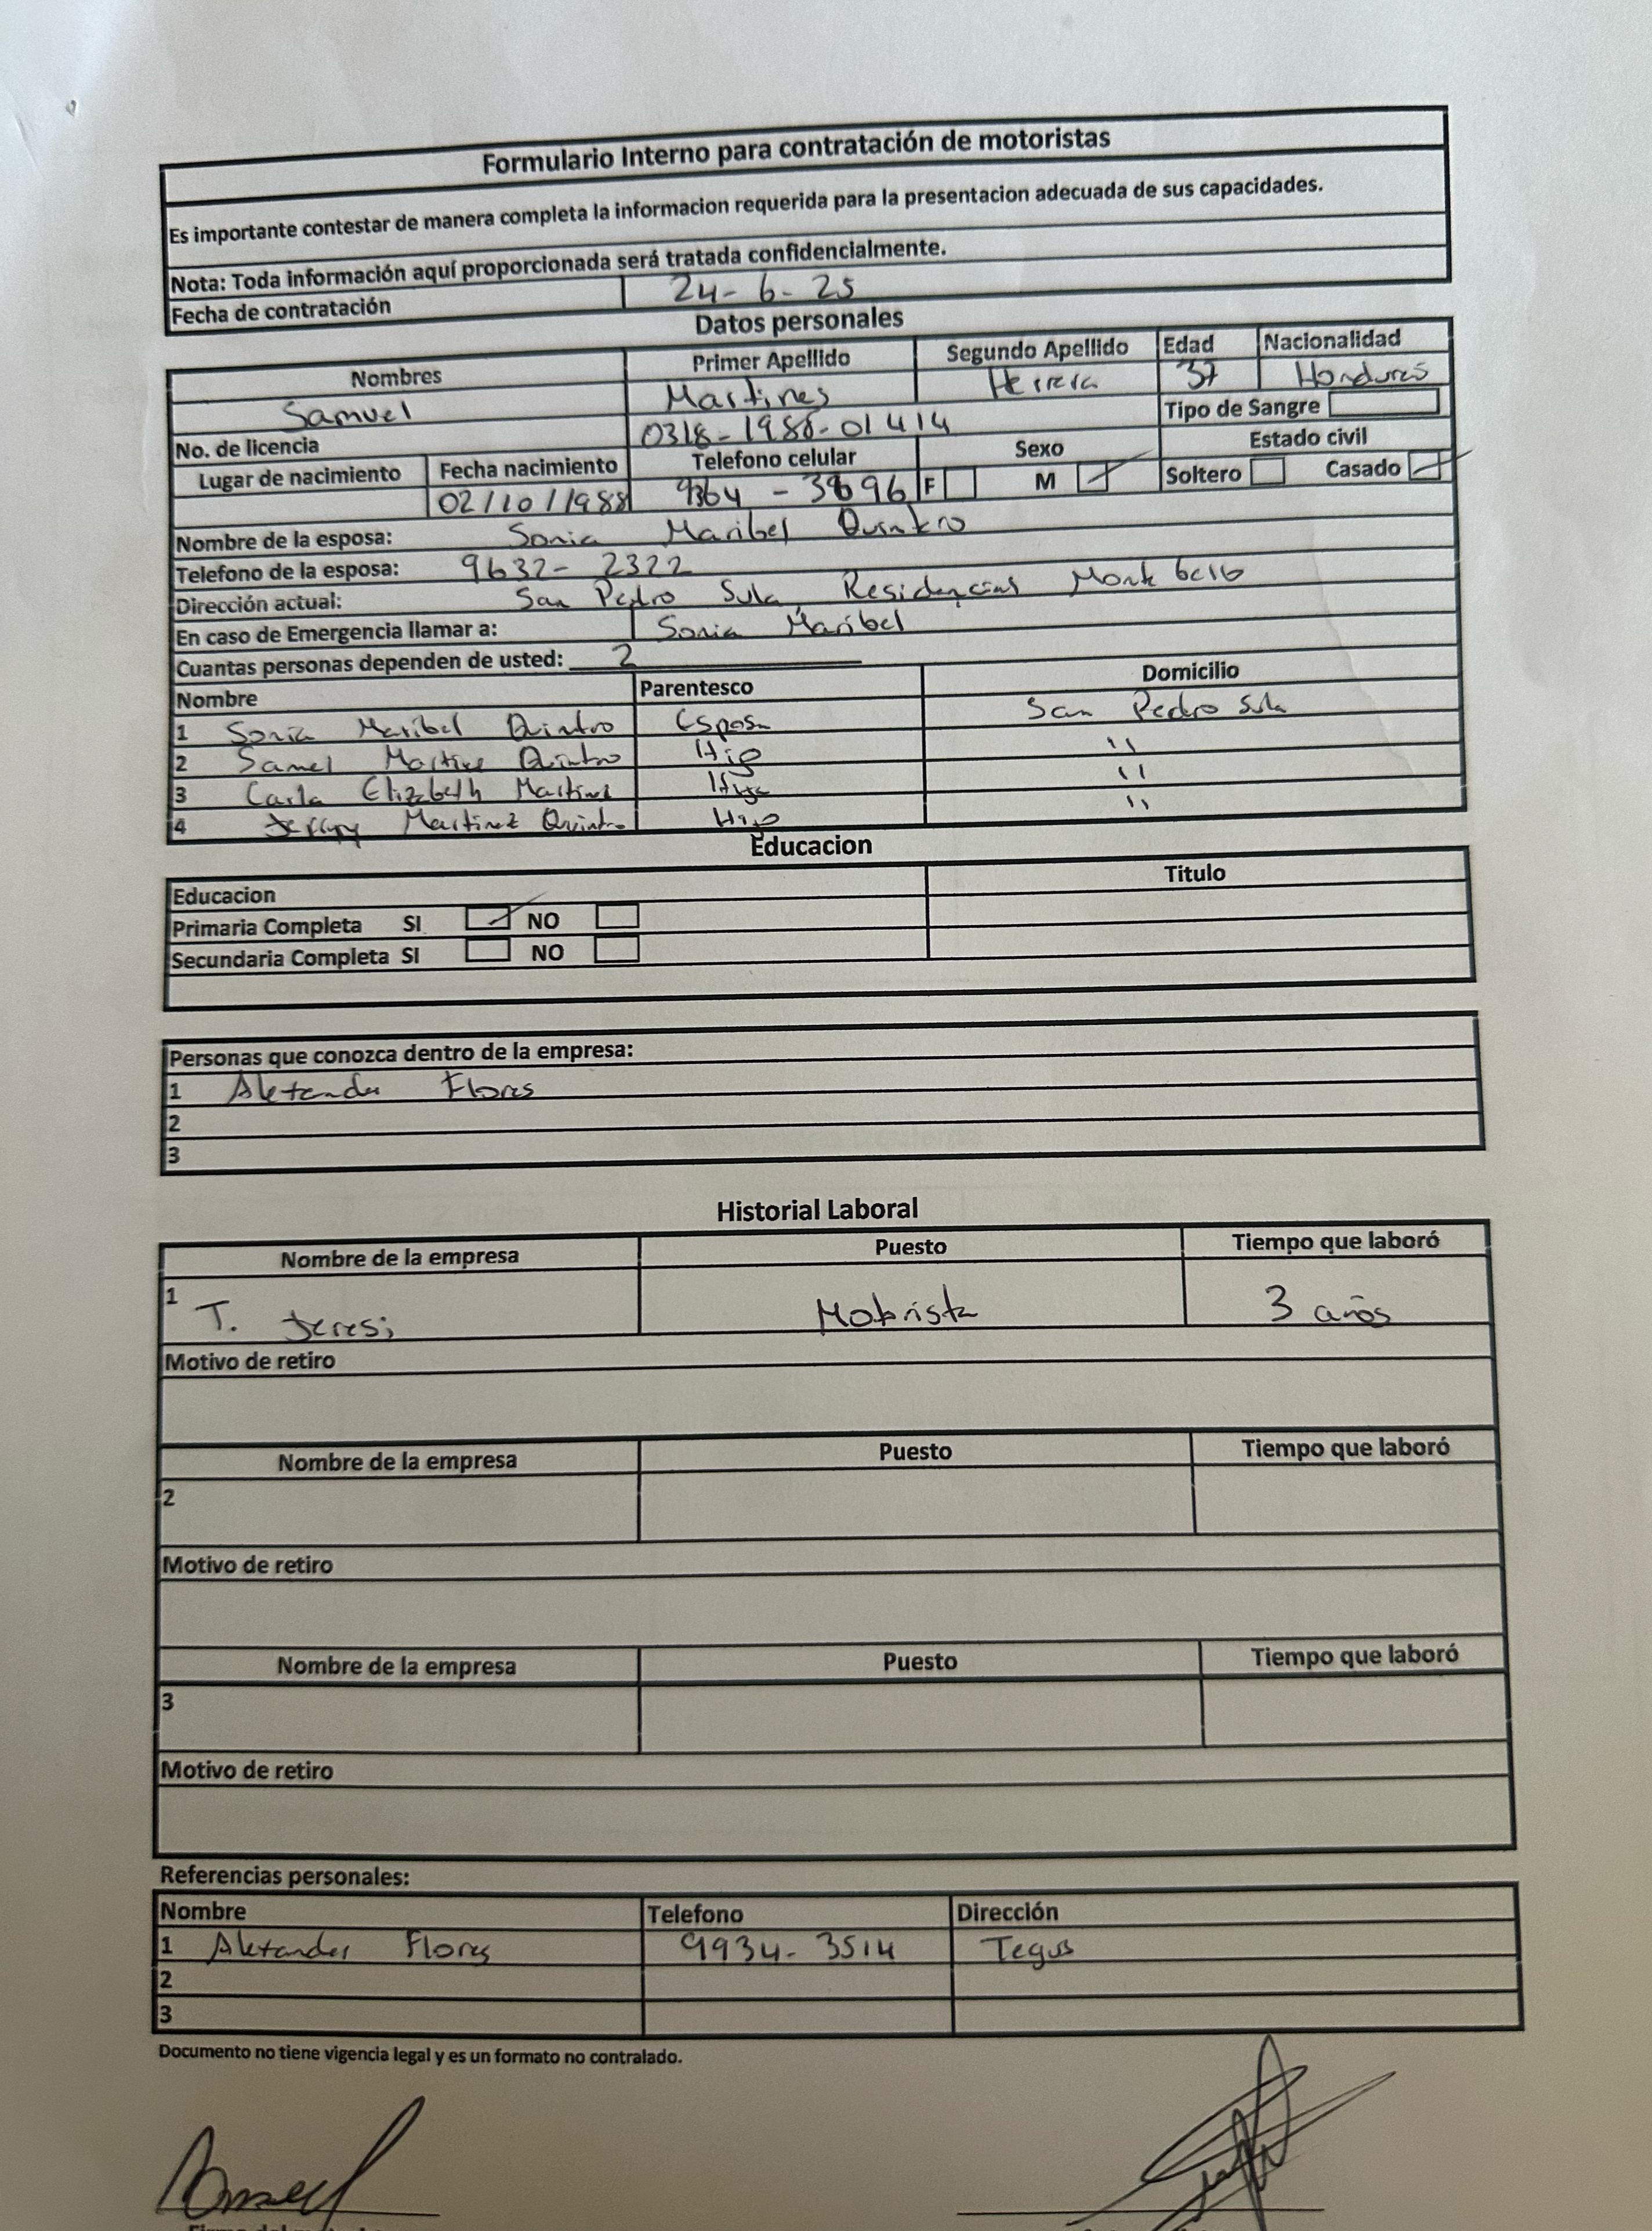 Formulario Interno para contratación de motoristas
Es importante contestar de manera completa la informacion requerida para la presentacion adecuada de sus capacidades.
Nota: Toda información aquí proporcionada será tratada confidencialmente.
Fecha de contratación 24-6-25
Datos personales
Nombres Primer Apellido Segundo Apellido Edad Nacionalidad
Samuel Martines Herrera 37
No. de licencia Tipo de Sangre
Lugar de nacimiento Fecha nacimiento Telefono celular Sexo Estado civil
02/10/1988 F M Soltero Casado
Nombre de la esposa: Sonia Maribel
Telefono de la esposa: 9632-2322
Dirección actual: San Pedro Sula
En caso de Emergencia llamar a: Sonia Maribel
Cuantas personas dependen de usted: 2
Nombre Parentesco Domicilio
1 Sonia Maribel Quintro Esposa San Pedro Sula
2 Quintro Hijo "
3 Carla Hija "
4 Martinez Quintro Hijo "
Educacion
Educacion Titulo
Primaria Completa SI NO
Secundaria Completa SI NO
Personas que conozca dentro de la empresa:
1 Flores
2
3
Historial Laboral
Nombre de la empresa Puesto Tiempo que laboró
1 T. 3 años
Motivo de retiro
Nombre de la empresa Puesto Tiempo que laboró
2
Motivo de retiro
Nombre de la empresa Puesto Tiempo que laboró
3
Motivo de retiro
Referencias personales:
Nombre Telefono Dirección
1 Flores 9934-3514 Tegus
2
3
Documento no tiene vigencia legal y es un formato no contralado.